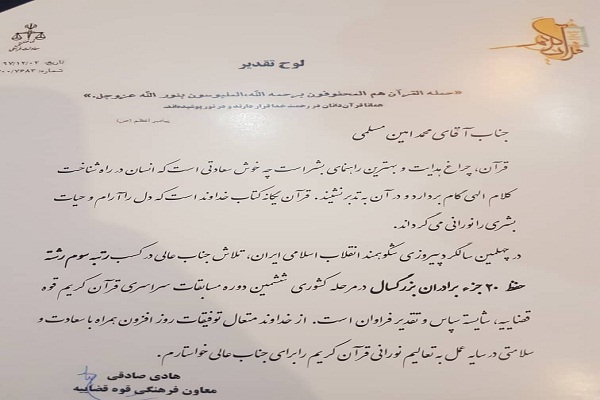 تاریخ: ۹۷/۱۲/۰۲
لوح تقدیر
«حمله القرآن هم المحفوفون برحمه الله،الملبوسون بنور الله عزوجل.»
همانا قرآن‌دانان در رحمت خدا قرار دارند و در نور پوشیده‌اند.
پیامبر اعظم (ص)
جناب آقای محمد امین مسلمی
قرآن، چراغ هدایت و بهترین راهنمای بشر است چه خوش سعادتی است که انسان در راه شناخت
کلام الهی گام بردارد و در آن به تدبر نشیند. قرآن یگانه کتاب خداوند است که دل را آرام و حیات
بشری را نورانی می گرداند.
در چهلمین سالگرد پیروزی شکوهمند انقلاب اسلامی ایران، تلاش جناب عالی در کسب رتبه سوم رشته
حفظ ۲۰ جزء برادران بزرگسال در مرحله کشوری ششمین دوره مسابقات سراسری قرآن کریم قوه
قضاییه، شایسته سپاس و تقدیر فراوان است. از خداوند متعال توفیقات روز افزون همراه با سعادت و
سلامتی در سایه عمل به تعالیم نورانی قرآن کریم را برای جناب عالی خواستارم.
هادی صادقی
معاون فرهنگی قوه قضاییه